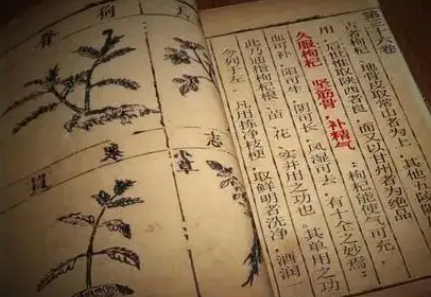 第三十六卷
古者枸杞、地骨皮取常山者为上，其他五陵阪
用，后世惟取陕西者良，而又以甘州者为绝品
久服枸杞 坚筋骨，补精气：枸杞能使气可充，
血可补，阳可生，阴可长，风湿可去，有十全之妙焉：
此乃通指枸杞根、苗、花、实并用之功也。其单用之功
今列于左：凡用拣净枝梗，取鲜明者洗净，酒润一
荷
志
小草
寒